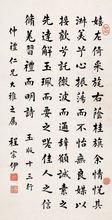 嬉左倚采旄右蔭桂旗余情悅其
淑美兮心振蕩而不怡無良媒以
接歡兮託微波以通辭願誠素之
先達兮解玉佩而要之嗟佳人之信
脩羌習禮而明詩 玉版十三行
仲禮仁兄大雅之屬 程宗伊